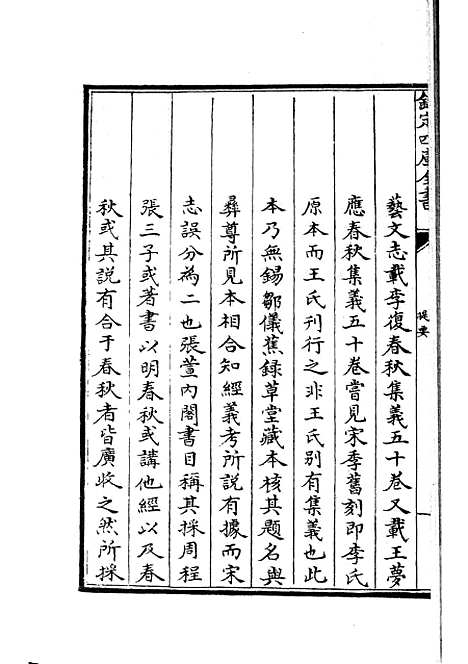 欽定四庫全書
提要
藝文志載李復春秋集義五十巻又載王夢
應春秋集義五十巻嘗見宋季舊刻即李氏
原本而王氏刊行之非王氏别有集義也此
本乃無錫鄒儀蕉録草堂藏本核其題名與
彞尊所見本相合知經義考所説有據而宋
志誤分為二也張萱内閣書目稱其採周程
張三子或著書以明春秋或講他經以及春
秋或其説有合于春秋者皆廣收之然所採